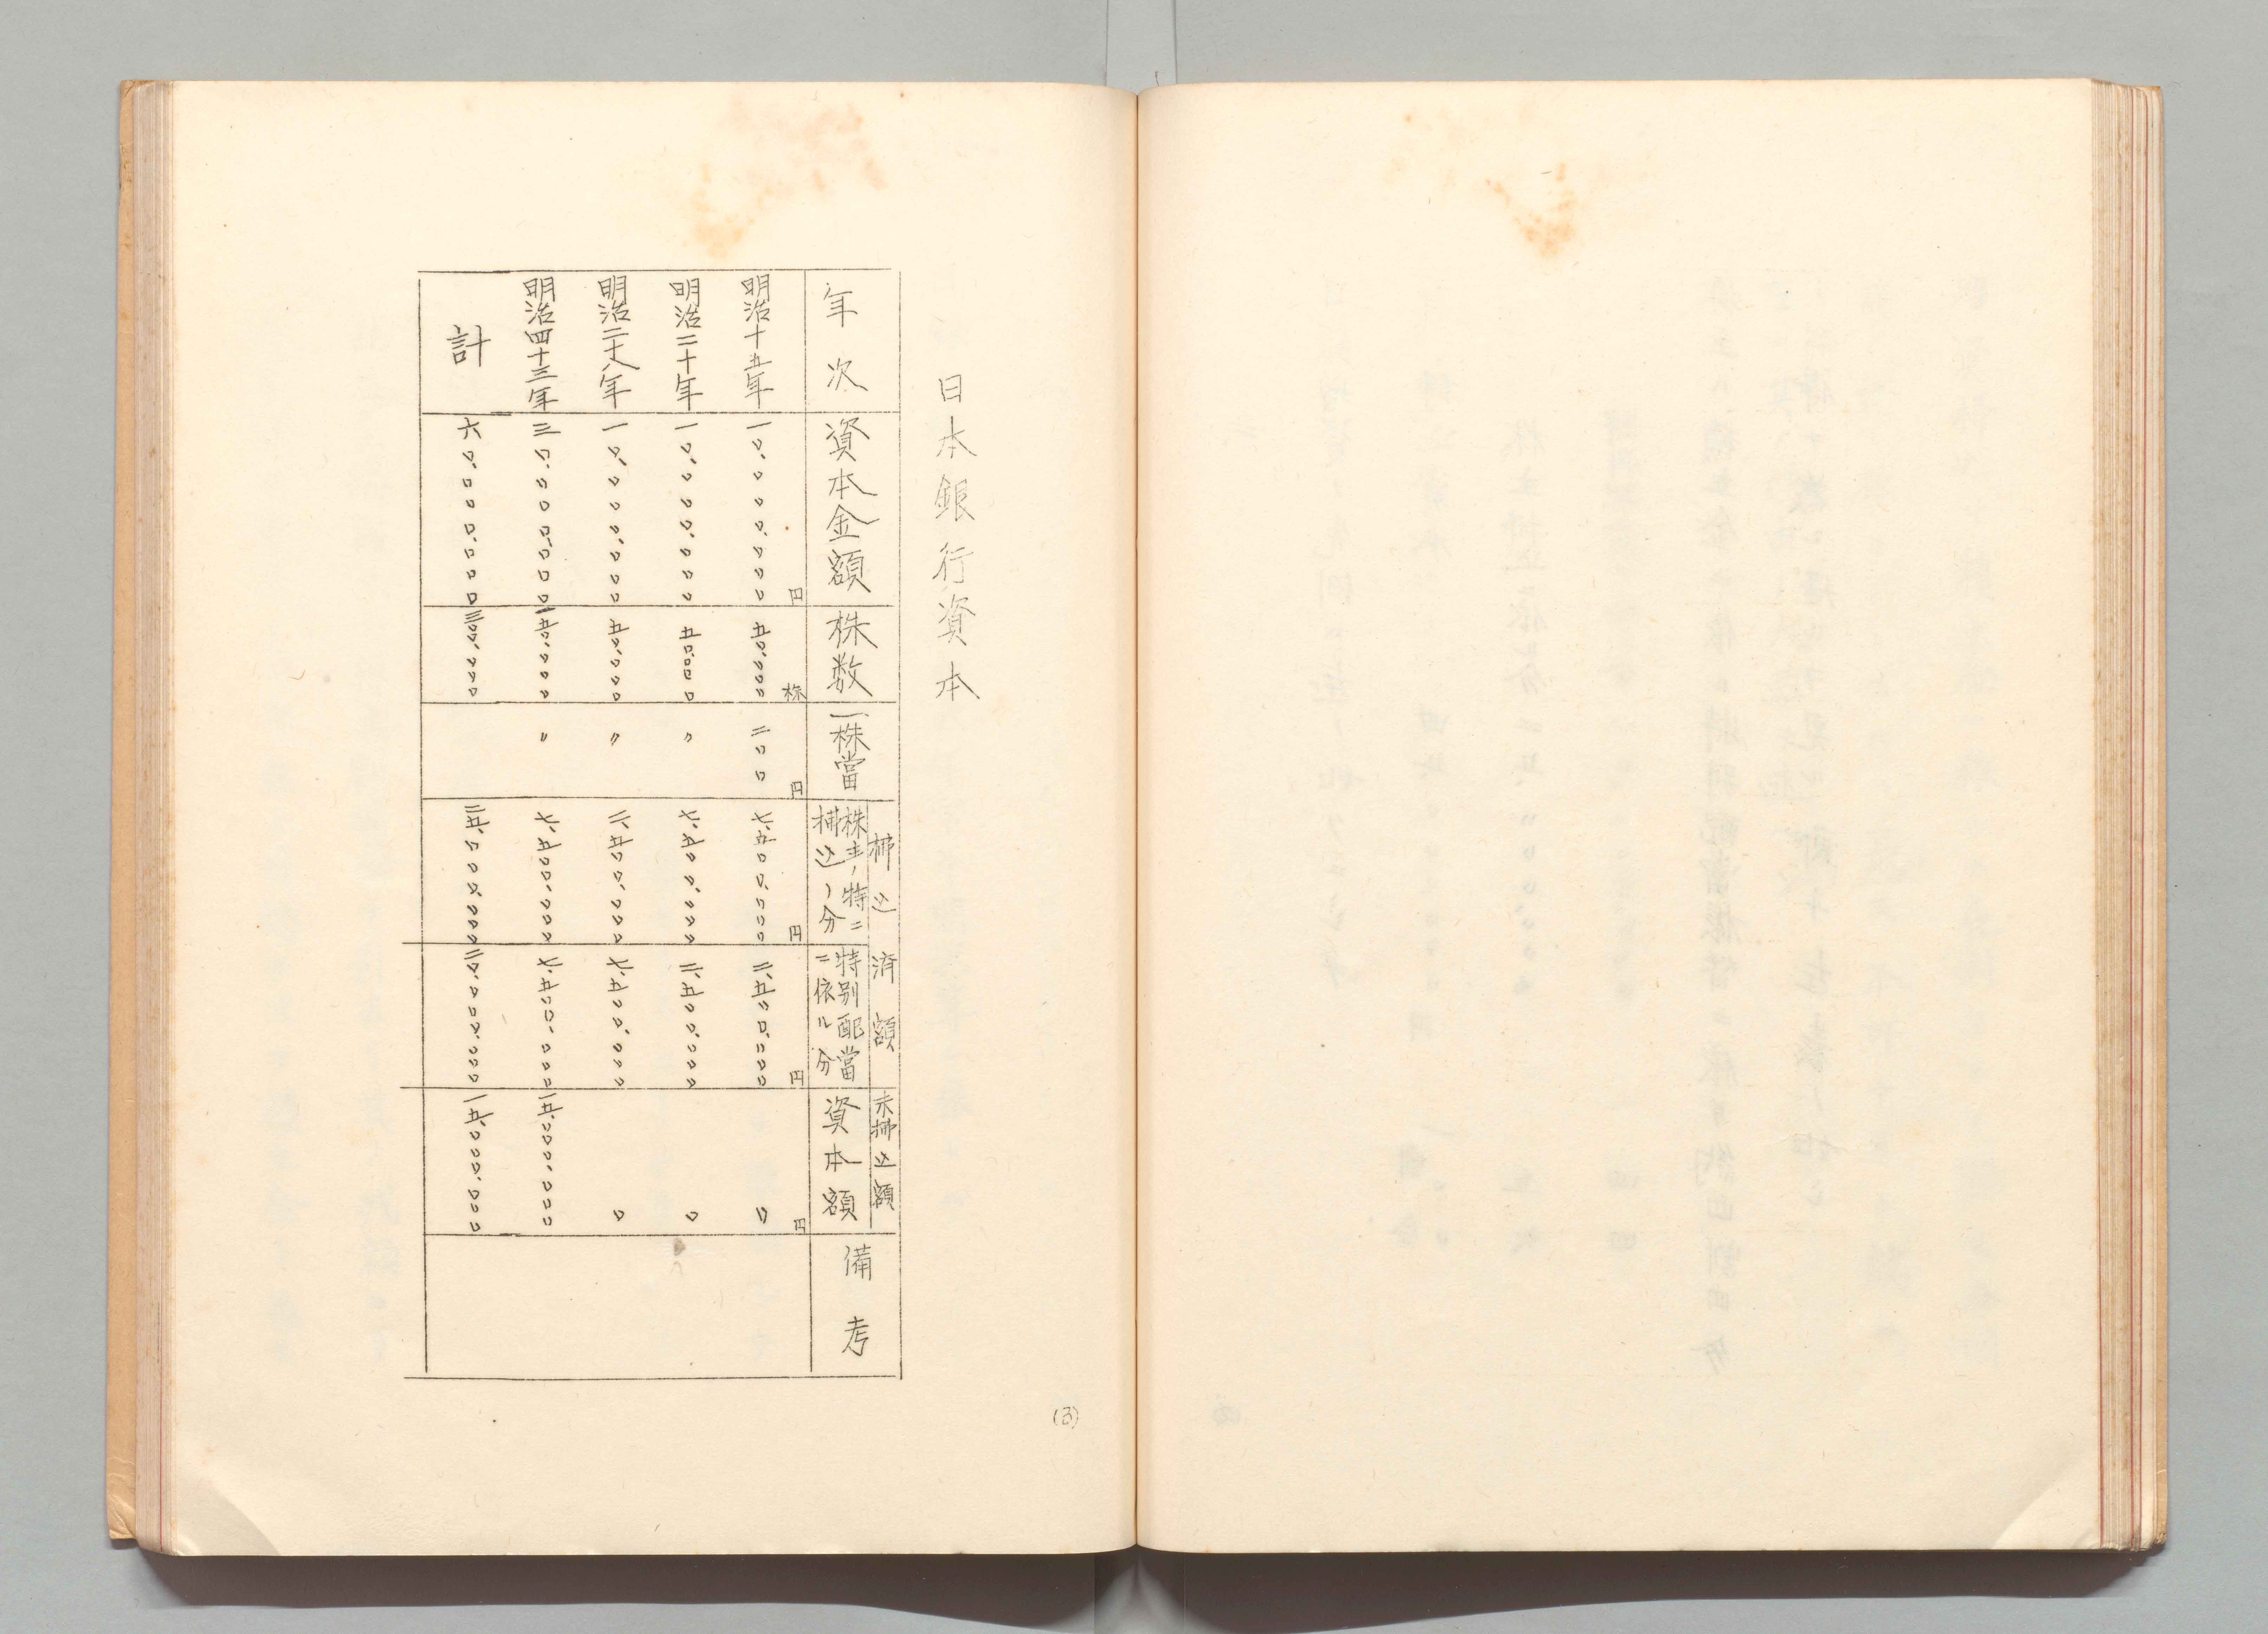 日本銀行資本
年次 資本金額 株数 一株當 払込済額 株主ノ特ニ払込ノ分 特別配當ニ依ル分 未払込額 資本額 備考
明治十五年 一〇、〇〇〇、〇〇〇円 五〇、〇〇〇株 二〇〇円 七、五〇〇、〇〇〇円 二、五〇〇、〇〇〇円 〇円
明治二十年 一〇、〇〇〇、〇〇〇 五〇、〇〇〇 〃 七、五〇〇、〇〇〇 二、五〇〇、〇〇〇 〇
明治二十八年 一〇、〇〇〇、〇〇〇 五〇、〇〇〇 〃 二、五〇〇、〇〇〇 七、五〇〇、〇〇〇 〇
明治四十三年 三〇、〇〇〇、〇〇〇 一五〇、〇〇〇 〃 七、五〇〇、〇〇〇 七、五〇〇、〇〇〇 一五、〇〇〇、〇〇〇
計 六〇、〇〇〇、〇〇〇 三〇〇、〇〇〇 二五、〇〇〇、〇〇〇 二〇、〇〇〇、〇〇〇 一五、〇〇〇、〇〇〇
(3)